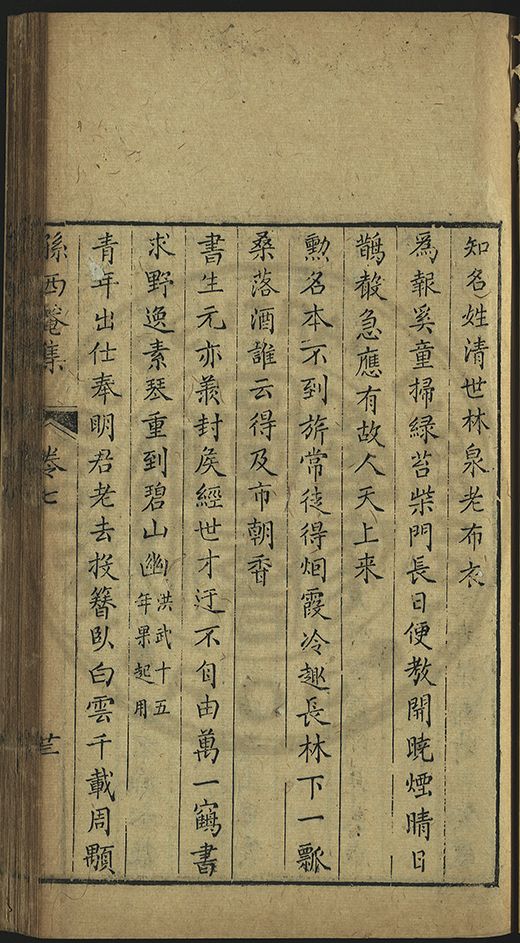 知名姓清世林泉老布衣
爲報奚童掃綠苔柴門長日便教開曉煙晴日
鵲聲急應有故人天上来
勲名本不到旂常徒得烟霞冷趣長林下一瓢
桑落酒誰云得及市朝香
書生元亦羨封矦經世才迂不自由萬一鶴書
求野逸素琴重到碧山幽洪武十五
年果起用
青年出仕奉明君老去投簪臥白雲千載周顒
孫西菴集 卷七